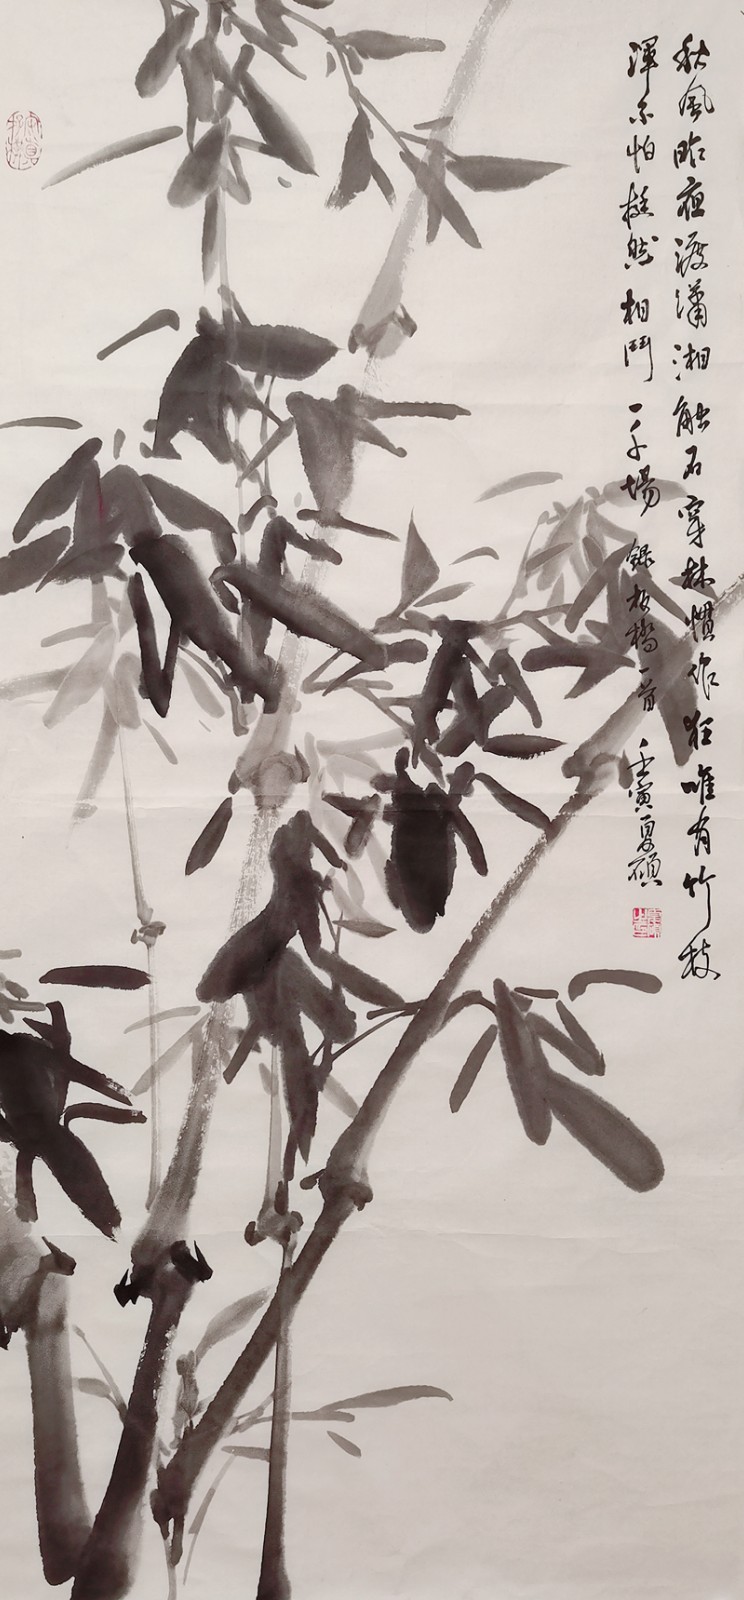 秋風昨夜渡瀟湘觸石穿林慣作狂唯有竹枝
渾不怕挺然相鬥一千場 錄板橋一首 壬寅夏碩